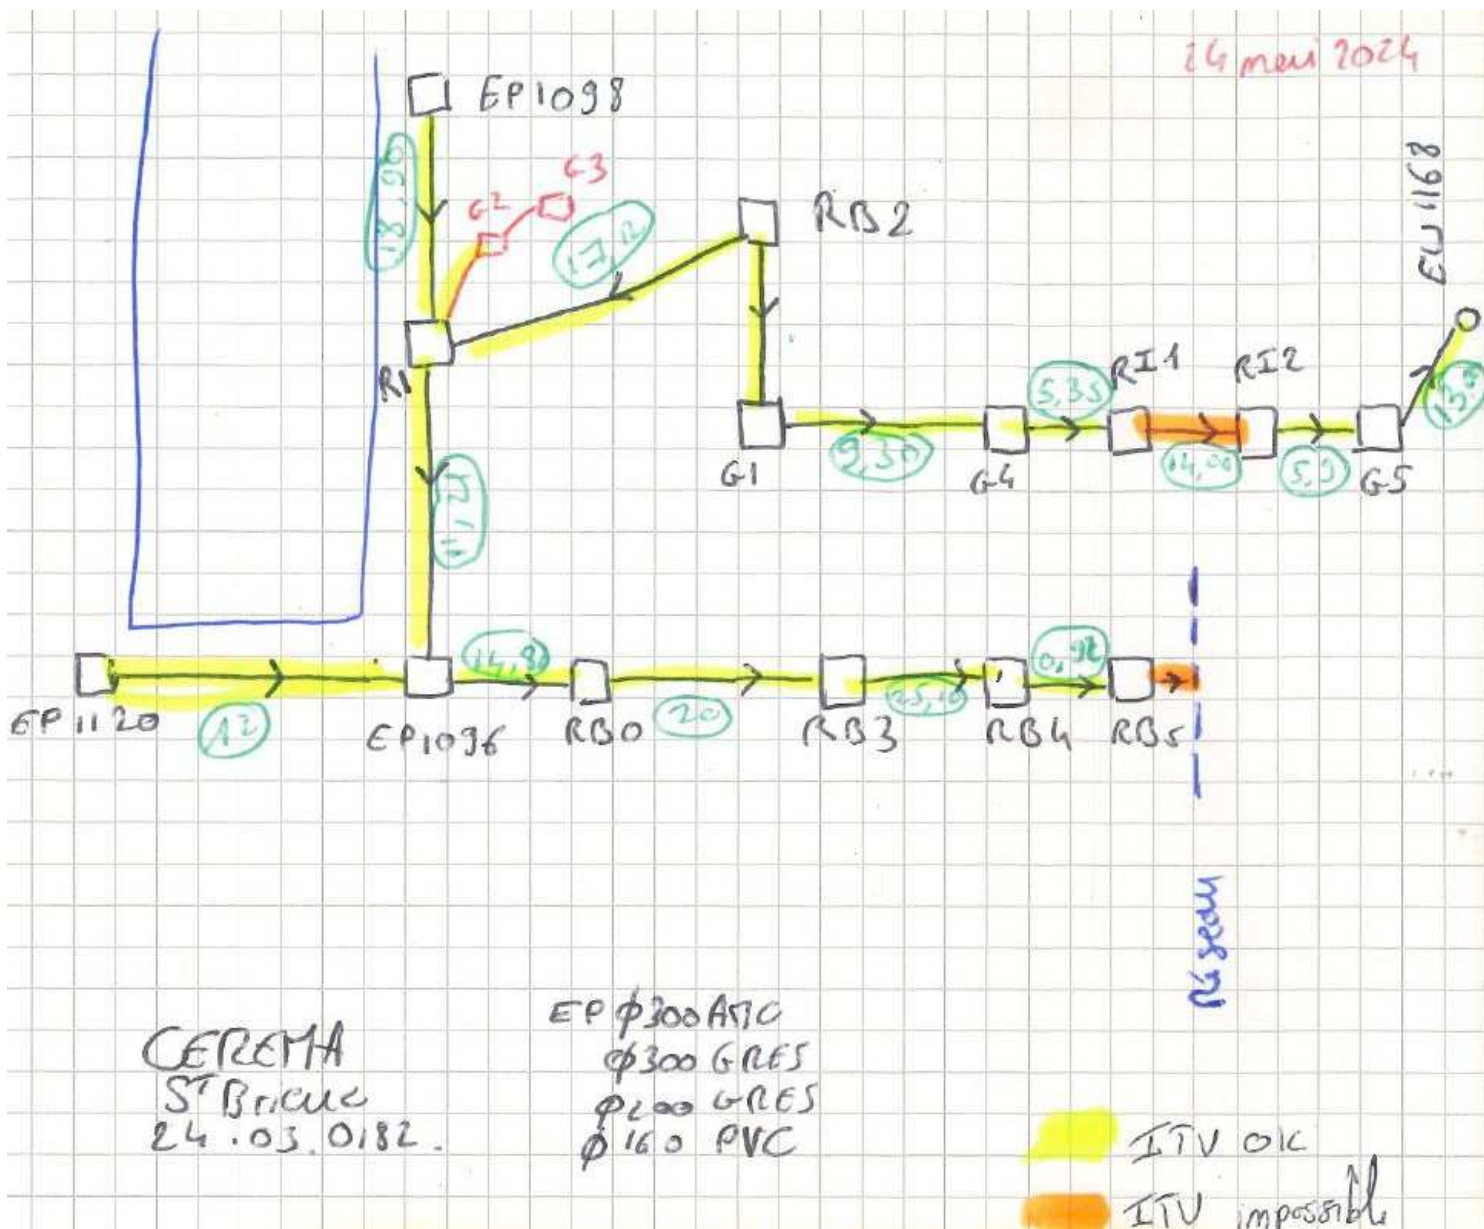 24 mai 2024
EP1098
18,90
G2
G3
17,12
RB2
EU1168
R1
5,35
RI1
RI2
G1
9,30
G4
14,00
5,9
G5
EP1120
12
EP1096
14,80
RB0
20
RB3
25,10
RB4
0,92
RB5
Réseau
CEREMA
St Brieuc
24.03.0182.
EP ϕ300 AMC
ϕ300 GRES
ϕ200 GRES
ϕ160 PVC
ITV OK
ITV impossible